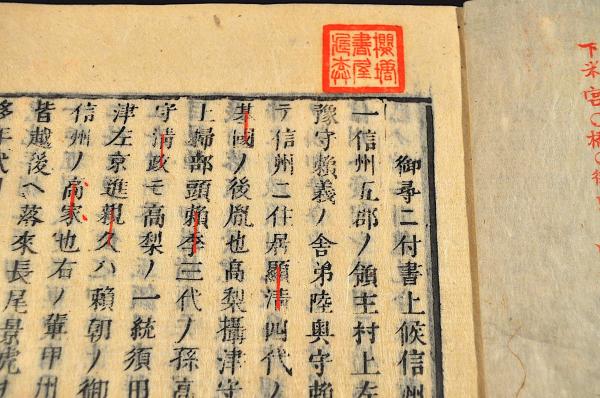 櫻塘
書屋
御尋ニ付書上候信州
一信州五郡ノ領主村上左
豫守賴義ノ舎弟陸奥守賴
ラ信州ニ住居顯清四代ノ
基國ノ後胤也高梨攝津守
上掃部頭賴季三代ノ孫高
守清政モ高梨ノ一統須田
津左京進親久ハ賴朝ノ御
信州ノ高家也右ノ輩甲州
皆越後ヘ落來長尾景虎